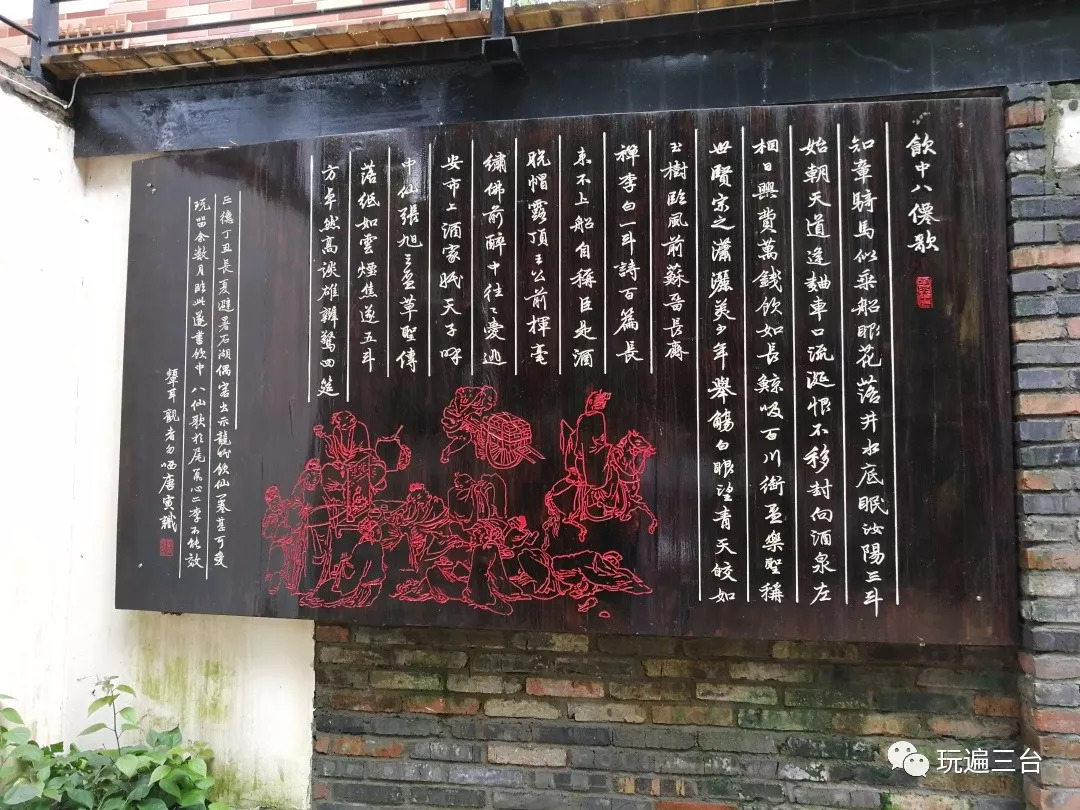 飲中八僊歌
知章騎馬似乘船眼花落井水底眠汝陽三斗
始朝天道逢麯車口流涎恨不移封向酒泉左
相日興費萬錢飲如長鯨吸百川銜盃樂聖稱
世賢宗之瀟灑美少年舉觴白眼望青天皎如
玉樹臨風前蘇晉長齋
禪李白一斗詩百篇長
來不上船自稱臣是酒
脫帽露頂王公前揮毫
繡佛前醉中往〻愛逃
安市上酒家眠天子呼
中仙張旭三盃草聖傳
落紙如雲煙焦遂五斗
方卓然高談雄辯驚四筵
正德丁丑長夏避暑石湖偶客出示龍眠飲仙一卷甚可愛
玩留余數月臨此遂書飲中八仙歌於尾心二李不能效
顰耳觀者勿哂唐寅識
玩遍三台